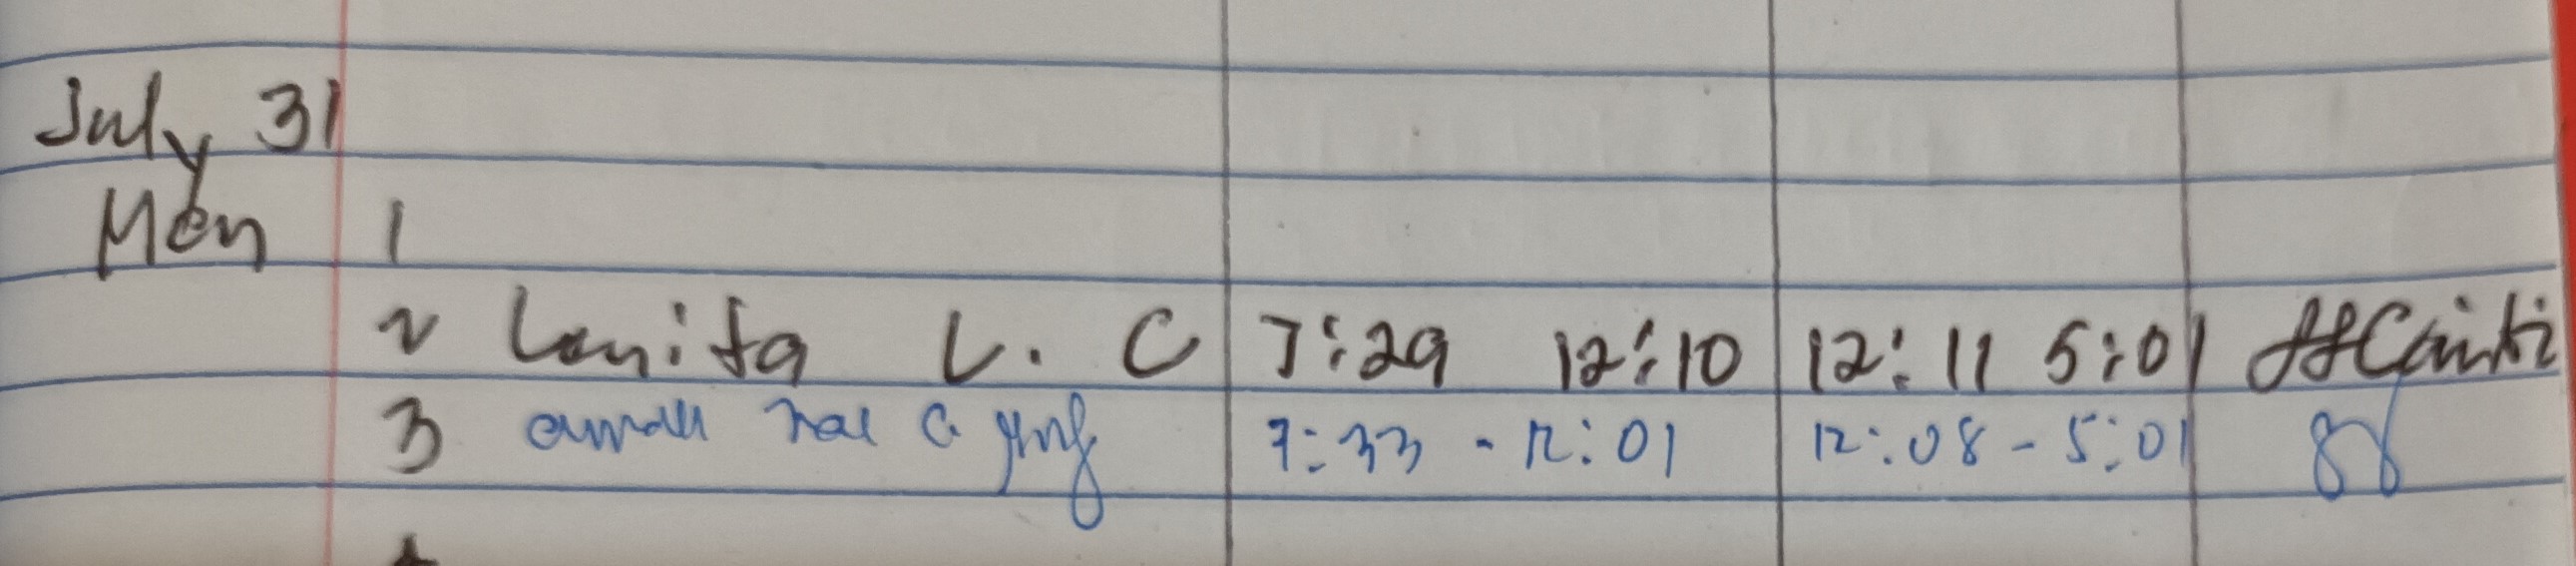 July 31
Mon 1
2 Lonita L. C 7:29 12:10 12:11 5:01
3 7:33 - 12:01 12:08 - 5:01